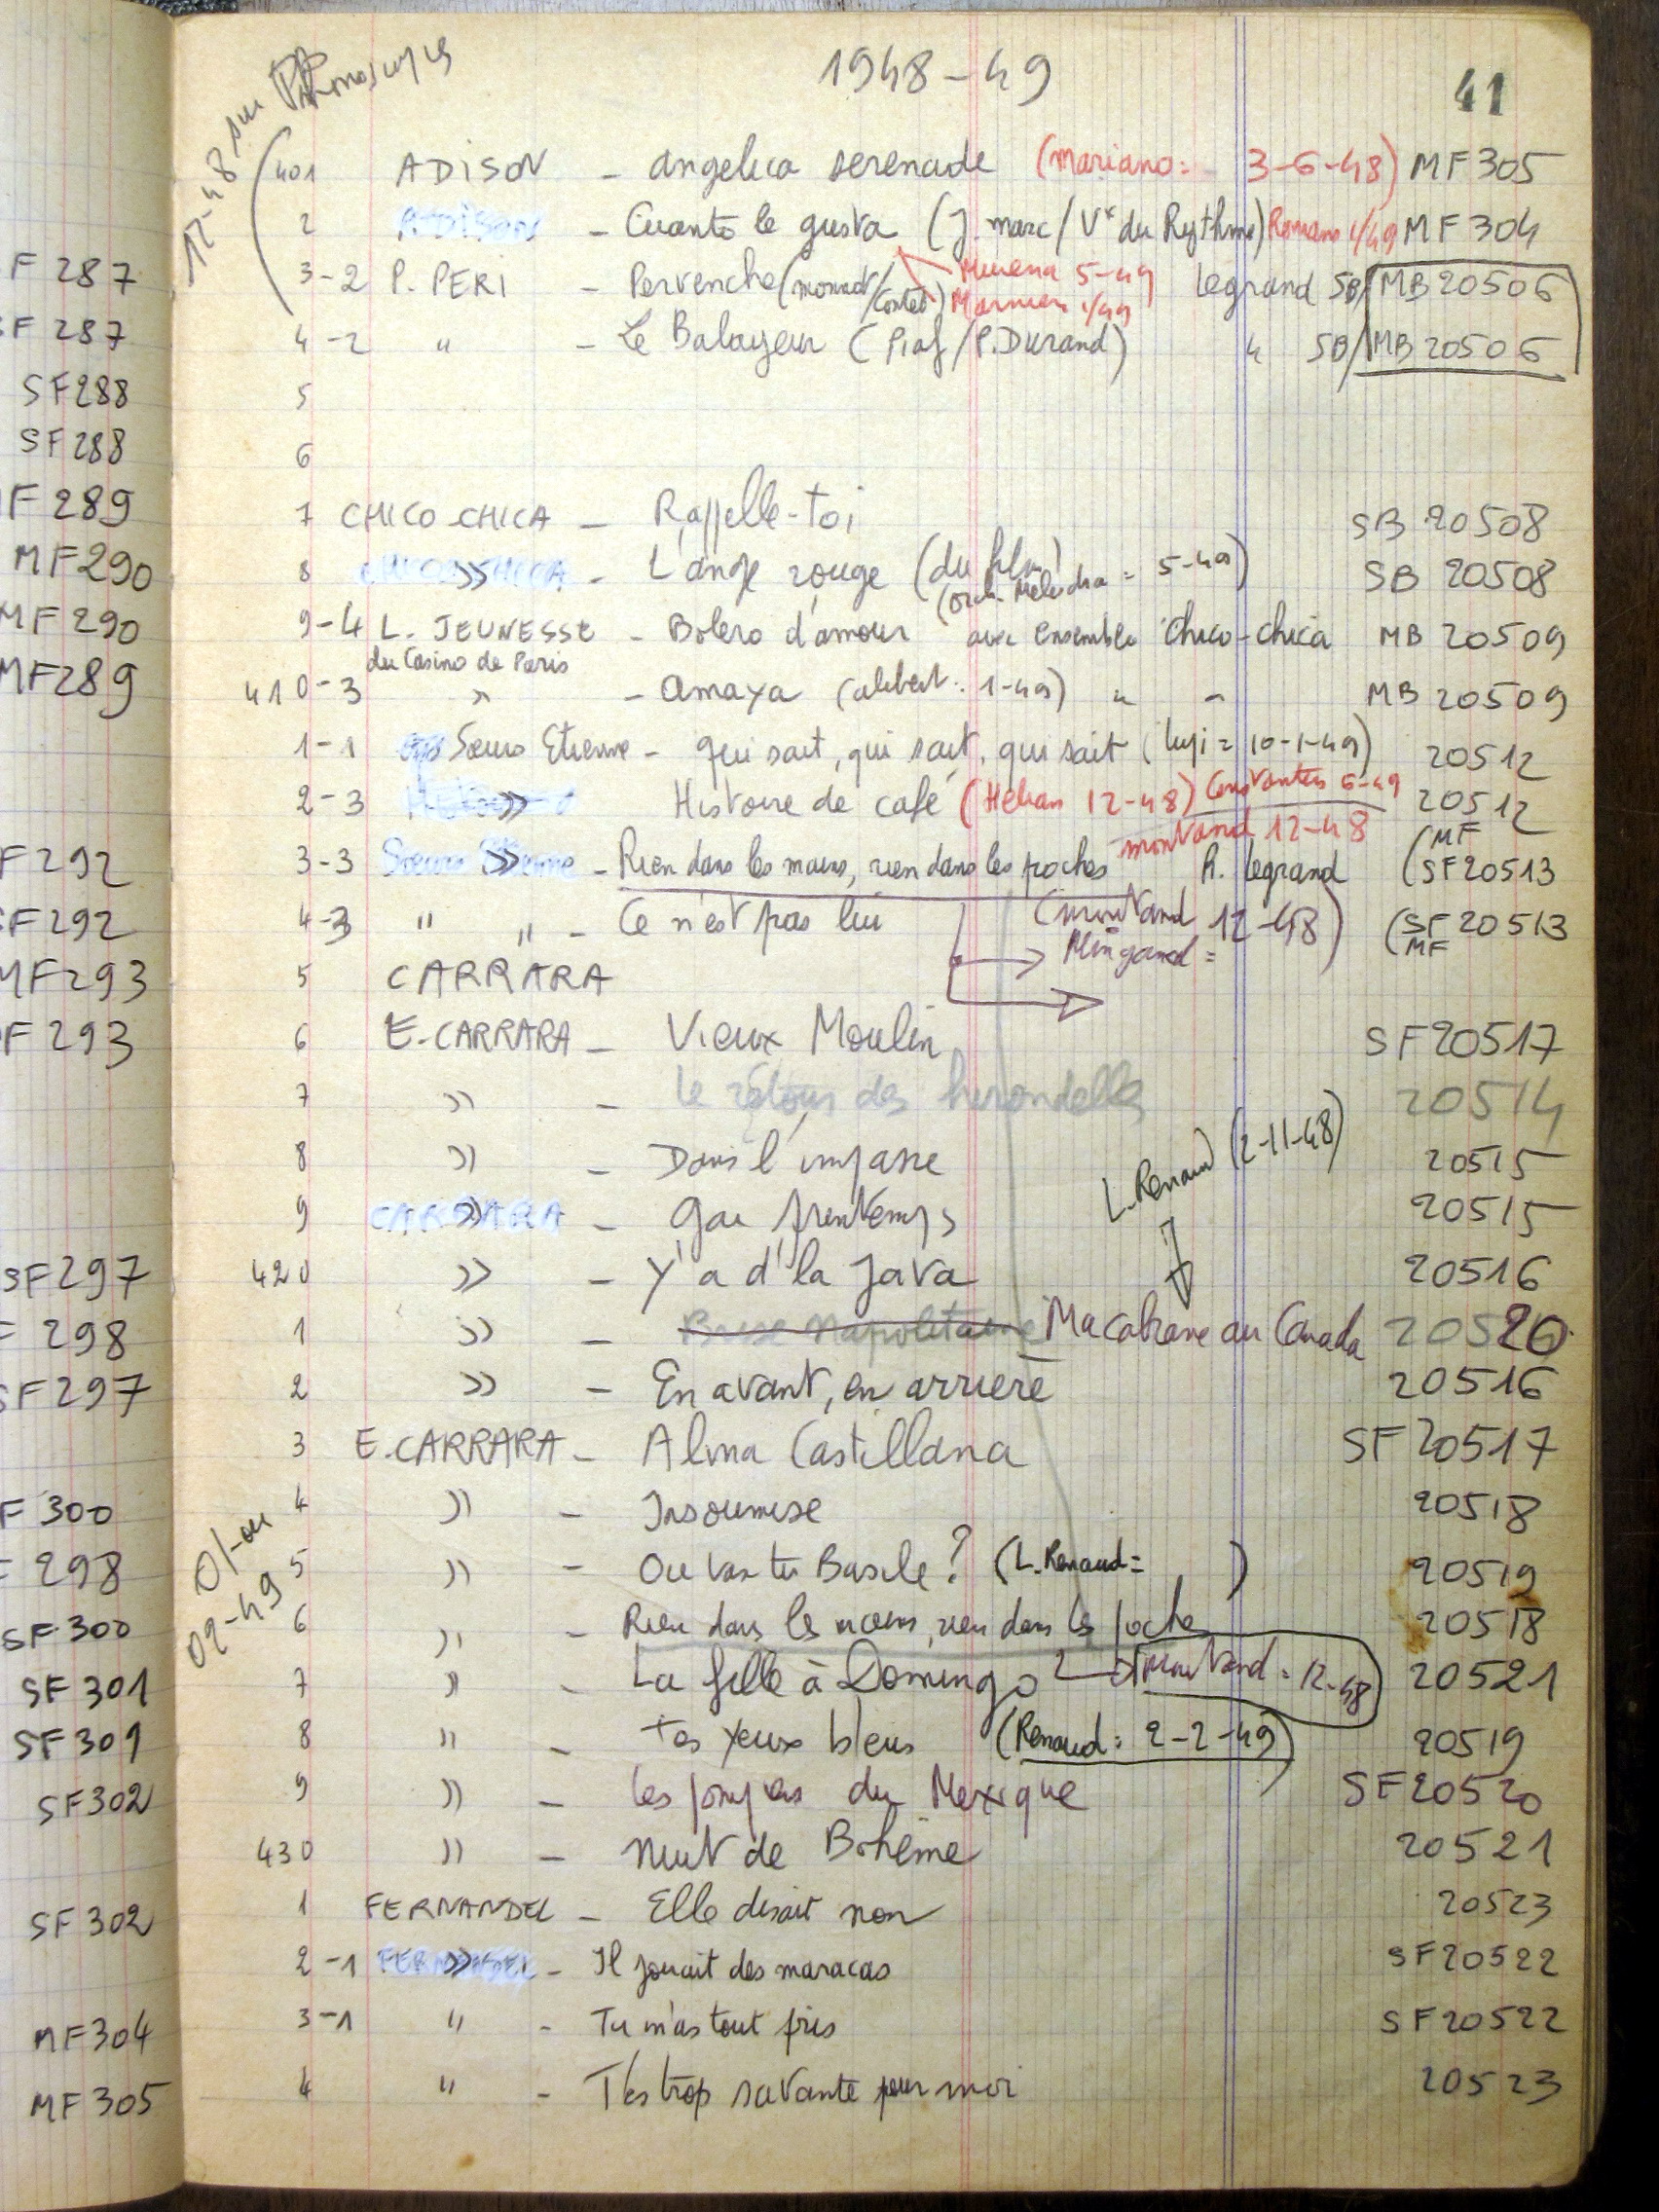 1948-49
41
12-48 sur
401 ADISON - Angelica serenade (Mariano = 3-6-48) MF 305
2 ADISON - Cuanto le gusta (J. Marc / Vx du Rythme) Romans 1/49 MF 304
3-2 P. PERI - Pervenche (monnot/Contet) Murena 5-49 Legrand SB/MB 20506
Marnier 1/49
4-2 " - Le Balayeur (Piaf / P. Durand) " SB/MB 20506
5
6
7 CHICO-CHICA - Rappelle-toi SB 20508
8 CHICO-CHICA » - L'ange rouge (du film) 5-49) SB 20508
(Orch. = 
9-4 L. JEUNESSE - Boléro d'amour avec ensemble Chico-Chica MB 20509
du Casino de Paris
410-3 » - Amaya (alibert : 1-49) " " MB 20509
1-1 Sœurs Etienne - qui sait, qui sait, qui sait (lupi = 10-1-49) 20512
2-3 » Histoire de café (Hélian 12-48) Constantin 6-49 20512
montand 12-48 MF
3-3 Sœurs Etienne » - Rien dans les mains, rien dans les poches R. Legrand (SF 20513
4-3 " " - Ce n'est pas lui (montand 12-48) (SF 20513
Mingand = MF
5 CARRARA
6 E. CARRARA - Vieux Moulin SF 20517
7 » - Le retour des hirondelles 20514
L. Renaud (2-11-48)
8 » - Dans l'impasse 20515
9 CARRARA » - Gai printemps 20515
420 » - Y'a d'la Java 20516
1 » - Brise Napolitaine Ma cabane au Canada 20520
2 » - En avant, en arrière 20516
3 E. CARRARA - Alma Castillana SF 20517
4 » - Insoumise 20518
01-ou
02-49
5 » - Ou vas tu Basile? (L. Renaud = ) 20519
6 » - Rien dans les mains, rien dans les poches 20518
7 » - La fille à Domingo montand = 12-48 20521
8 " - Tes yeux bleus (Renaud = 2-2-49) 20519
9 » - Les pompiers du Mexique SF 20520
430 » - Nuit de Bohême 20521
1 FERNANDEL - Elle disait non 20523
2-1 FERNANDEL » - Il jouait des maracas SF 20522
3-1 " - Tu m'as tout pris SF 20522
4 " - T'es trop savante pour moi 20523
F 287
SF 287
SF 288
SF 288
MF 289
MF 290
MF 290
MF 289
F 292
SF 292
MF 293
F 293
SF 297
F 298
SF 297
F 300
298
SF 300
SF 301
SF 301
SF 302
SF 302
MF 304
MF 305